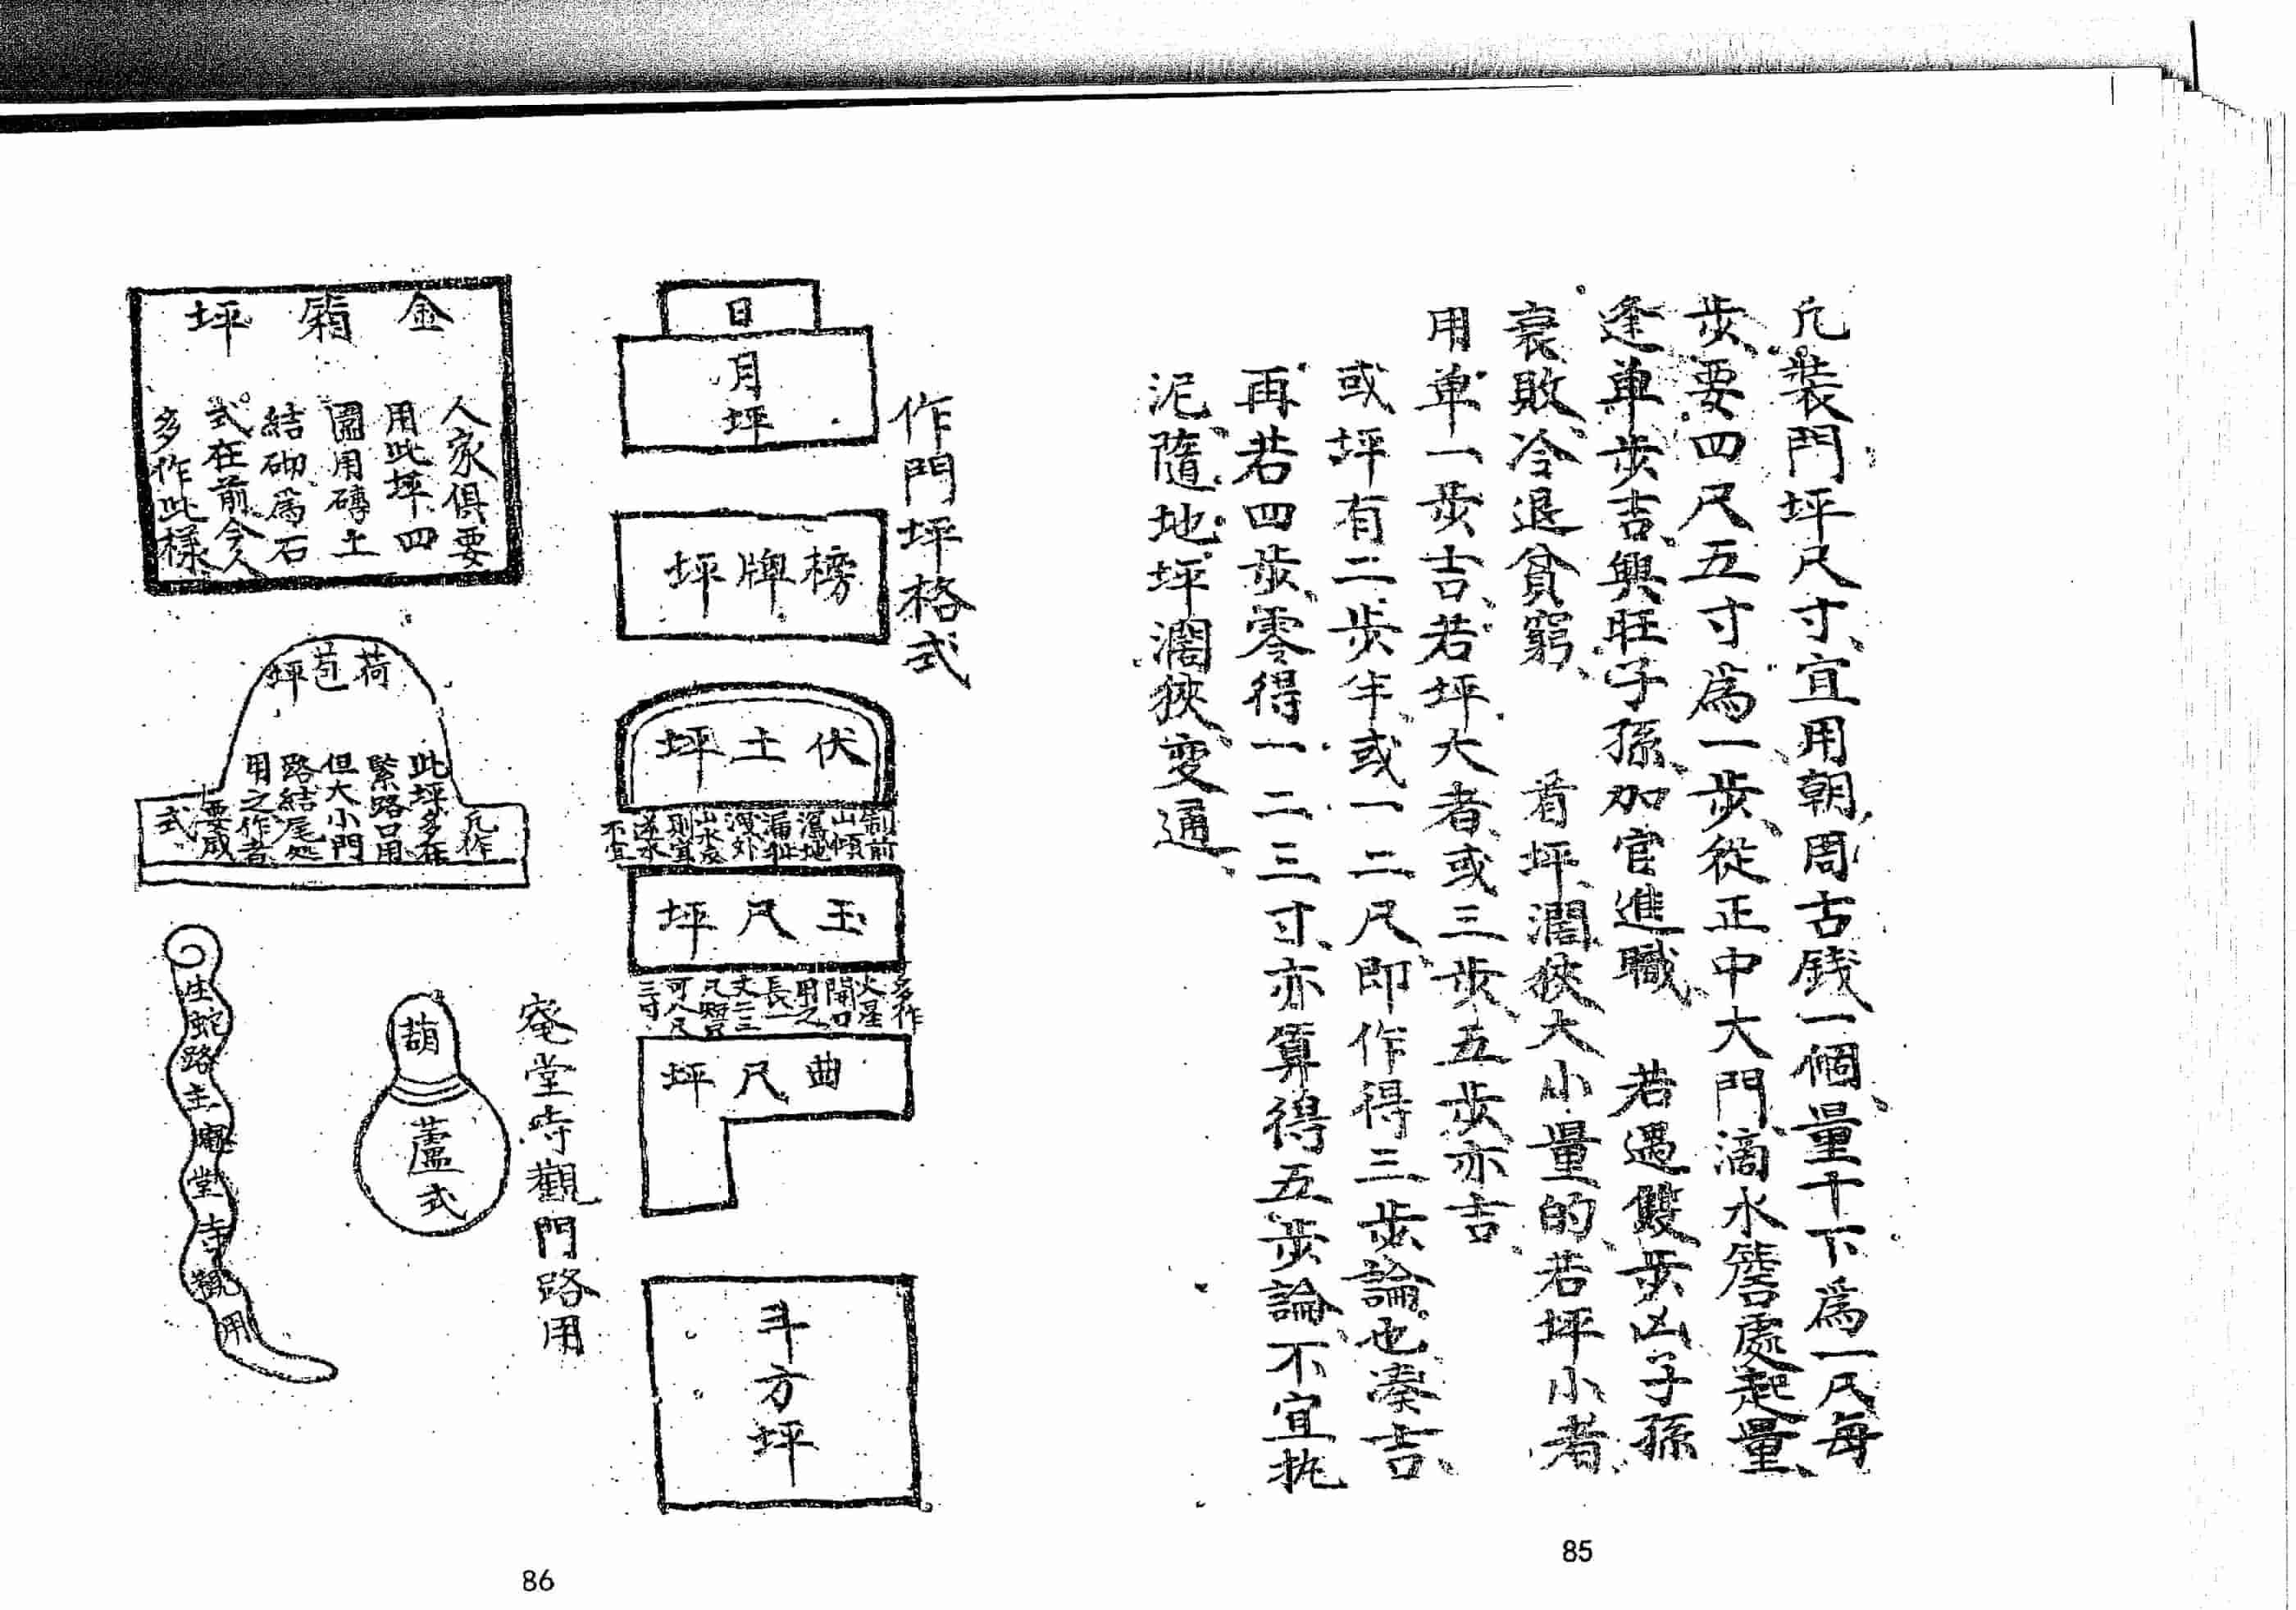 凡裝門坪尺寸宜用朝周古錢一個量十下為一尺每
步要四尺五寸為一步從正中大門滴水簷處起量
逢單步吉興旺子孫加官進職 若遇雙步凶子孫
衰敗冷退貧窮 看坪濶狹大小量的若坪小者
用單一步吉若坪大者或三步五步亦吉
或坪有二步半或一二尺即作得三步論也湊吉
再若四步零得一二三寸亦算得五步論不宜执
泥隨地坪濶狹变通
85
作門坪格式
日
月坪
榜牌坪
伏土坪
制前
山傾
瀉地
漏
洩外
山水反
則宜
逆水
不宜
玉尺坪
多作
火星
開口
用之
長一
丈二三
尺
可八尺
三寸
曲尺坪
斗方坪
金箱坪
人家俱要
用此坪四
圍用磚土
結砌為石
式在前今人
多作此樣
荷苞坪
凡作
此坪多在
緊路口用
但大小門
路結尾処
用之作者
要成
式
菴堂寺觀門路用
葫蘆式
生蛇路主庵堂寺觀用
86